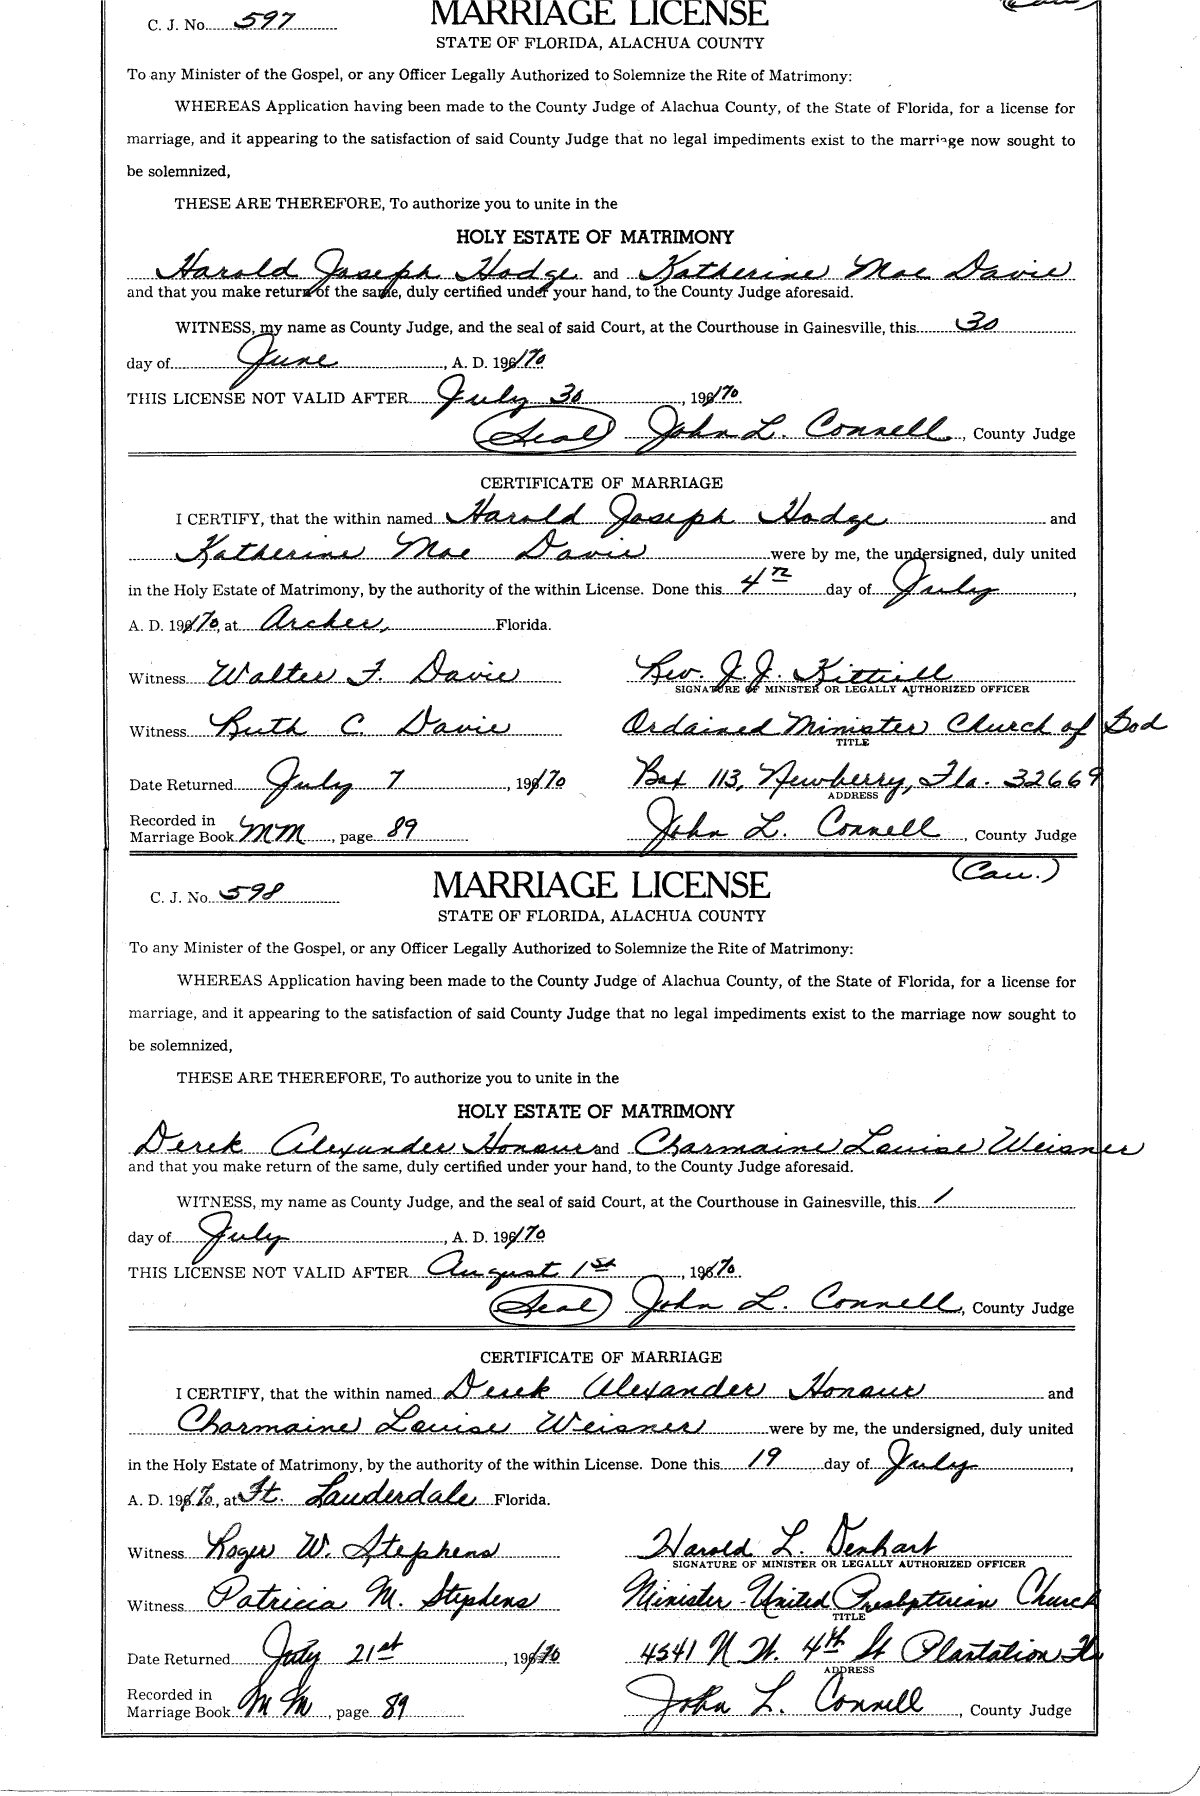 (Cau.)
C. J. No. 597
MARRIAGE LICENSE
STATE OF FLORIDA, ALACHUA COUNTY
To any Minister of the Gospel, or any Officer Legally Authorized to Solemnize the Rite of Matrimony:
WHEREAS Application having been made to the County Judge of Alachua County, of the State of Florida, for a license for
marriage, and it appearing to the satisfaction of said County Judge that no legal impediments exist to the marriage now sought to
be solemnized,
THESE ARE THEREFORE, To authorize you to unite in the
HOLY ESTATE OF MATRIMONY
Harold Joseph Hodge and Katherine Mae Davie
and that you make return of the same, duly certified under your hand, to the County Judge aforesaid.
WITNESS, my name as County Judge, and the seal of said Court, at the Courthouse in Gainesville, this 30
day of June, A. D. 1970
THIS LICENSE NOT VALID AFTER July 30, 1970
(Seal) John L. Connell, County Judge
CERTIFICATE OF MARRIAGE
I CERTIFY, that the within named Harold Joseph Hodge and
Katherine Mae Davie were by me, the undersigned, duly united
in the Holy Estate of Matrimony, by the authority of the within License. Done this 4th day of July,
A. D. 1970, at Archer, Florida.
Witness Walter F. Davie Rev. J. J. Kittrell
SIGNATURE OF MINISTER OR LEGALLY AUTHORIZED OFFICER
Witness Ruth C. Davie Ordained Minister Church of God
TITLE
Date Returned July 7, 1970 Box 113, Newberry, Fla. 32669
ADDRESS
Recorded in
Marriage Book MM, page 89 John L. Connell, County Judge
(Cau.)
C. J. No. 598
MARRIAGE LICENSE
STATE OF FLORIDA, ALACHUA COUNTY
To any Minister of the Gospel, or any Officer Legally Authorized to Solemnize the Rite of Matrimony:
WHEREAS Application having been made to the County Judge of Alachua County, of the State of Florida, for a license for
marriage, and it appearing to the satisfaction of said County Judge that no legal impediments exist to the marriage now sought to
be solemnized,
THESE ARE THEREFORE, To authorize you to unite in the
HOLY ESTATE OF MATRIMONY
Derek Alexander Honour and Charmaine Louise Weisner
and that you make return of the same, duly certified under your hand, to the County Judge aforesaid.
WITNESS, my name as County Judge, and the seal of said Court, at the Courthouse in Gainesville, this 1
day of July, A. D. 1970
THIS LICENSE NOT VALID AFTER August 1st, 1970
(Seal) John L. Connell, County Judge
CERTIFICATE OF MARRIAGE
I CERTIFY, that the within named Derek Alexander Honour and
Charmaine Louise Weisner were by me, the undersigned, duly united
in the Holy Estate of Matrimony, by the authority of the within License. Done this 19 day of July,
A. D. 1970, at Ft. Lauderdale Florida.
Witness Roger W. Stephens Harold L. Denhart
SIGNATURE OF MINISTER OR LEGALLY AUTHORIZED OFFICER
Witness Patricia M. Stephens Minister-United Presbyterian Church
TITLE
Date Returned July 21st, 1970 4541 N. W. 4th St Plantation Fla
ADDRESS
Recorded in
Marriage Book MM, page 89 John L. Connell, County Judge